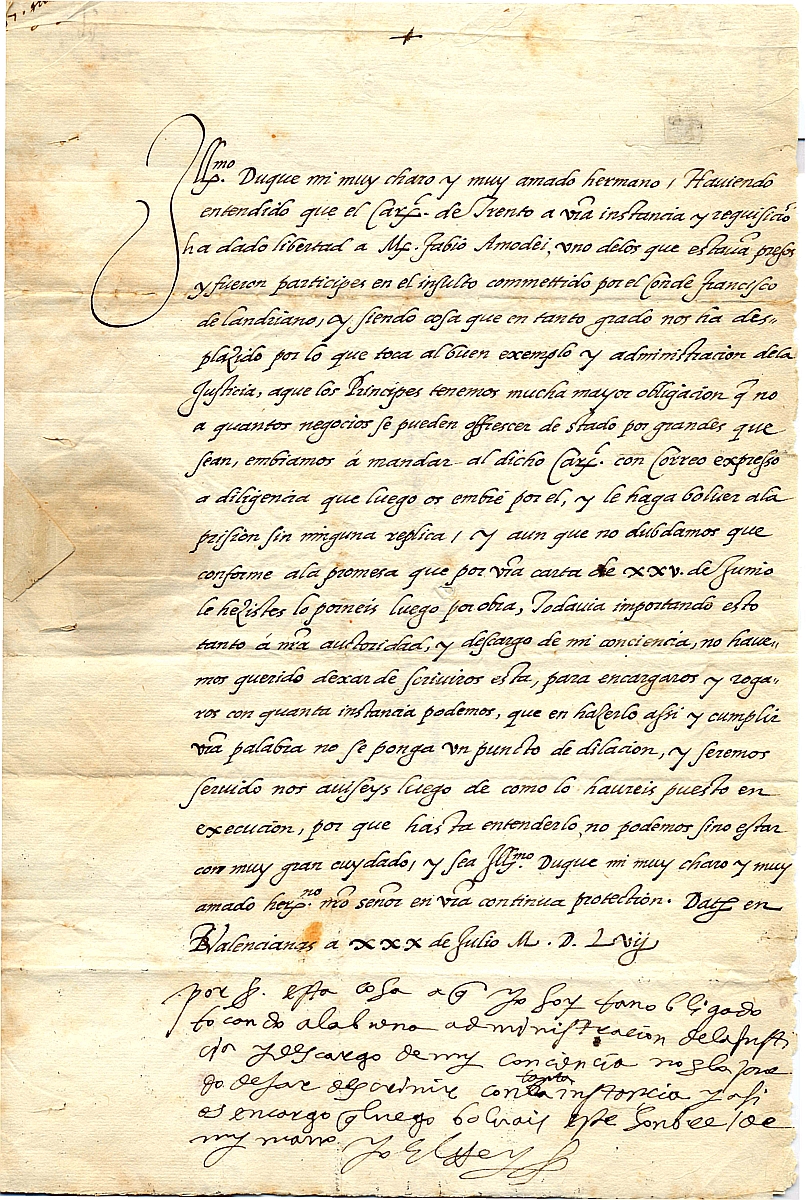 Ill.mo Duque mi muy charo y muy amado hermano, Haviendo
entendido que el Car.l de Trento a vra instancia y requisicio
ha dado libertad a M. Fabio Amodei, uno delos que estava presos
y fueron participes en el insulto commettido por el Conde Francisco
de Landriano, y siendo cosa que en tanto grado nos ha des-
plazido por lo que toca al buen exemplo y administracion dela
Justicia, aque los Principes tenemos mucha mayor obligacion q no
a quantos negocios se pueden offrescer de stado por grandes que
sean, embiamos á mandar al dicho Car.l con Correo expresso
a diligencia que luego os embie por el, y le haga bolver ala
prision sin ninguna replica, y aun que no dubdamos que
conforme ala promesa que por vra carta de xxv. de Junio
le hezistes lo porneis luego por obra, Todavia importando esto
tanto á nra autoridad, y descargo de mi conciencia, no have-
mos querido dexar de scriviros esta, para encargaros y roga-
ros con quanta instancia podemos, que en hazerlo assi y cumplir
vra palabra no se ponga un puncto de dilacion, y seremos
servido nos aviseys luego de como lo haureis puesto en
execucion, por que hasta entenderlo no podemos sino estar
con muy gran cuydado, y sea Ill.mo Duque mi muy charo y muy
amado her.no nro señor en vra continua protection. Dat en
Valencianas a xxx de Julio M. D. Lvij
por s. esta cosa a q yo soy tan obligado
tocando ala buena administracion dela justi
cia y descargo de my conciencia no he
do dexar de scrivir con tanta instancia y asi
os encargo q luego bolvais este honbre de
my mano Yo el Rey